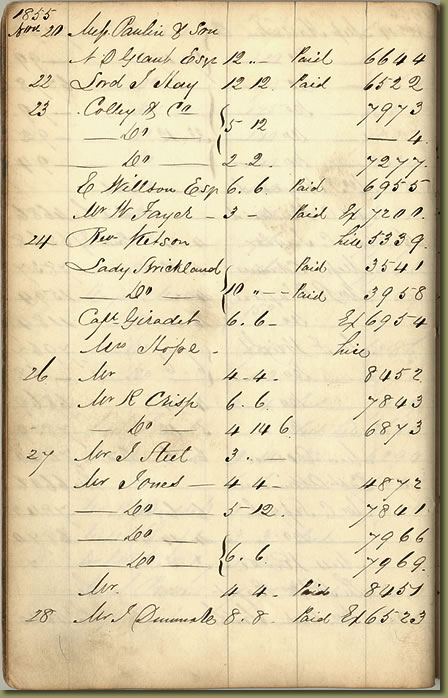 1855
Novr 20 Messrs Paulin & Son
N D Grant Esqr 12 " - Paid 6644
22 Lord J Hay 12 12 Paid 6522
23 Colley & Co 7973
— Do — { 5 12 — 4
— Do — 2 2. 7277
E Willson Esqr 6. 6 Paid 6955
Mr W — 3 — Paid Ex 7200
24 Rev hire 5339
Lady Strickland Paid 3541
— Do — { 10 " — Paid 3958
Capt 6. 6 — Ex 6954
Mrs Hope - hire
26 Mr 4 - 4 - 8452
Mr R Crisp 6. 6. 7843
— Do — 4 14 6 6873
27 Mr J Steel 3 . —
Mr Jones — 4 4 - 4872
— Do — 5 - 12 . 7841
— Do — 7966
— Do — { 6. 6. 7969
Mr. 4 4 . Paid 8451
28 Mr J 8. 8. Paid Ex 6523